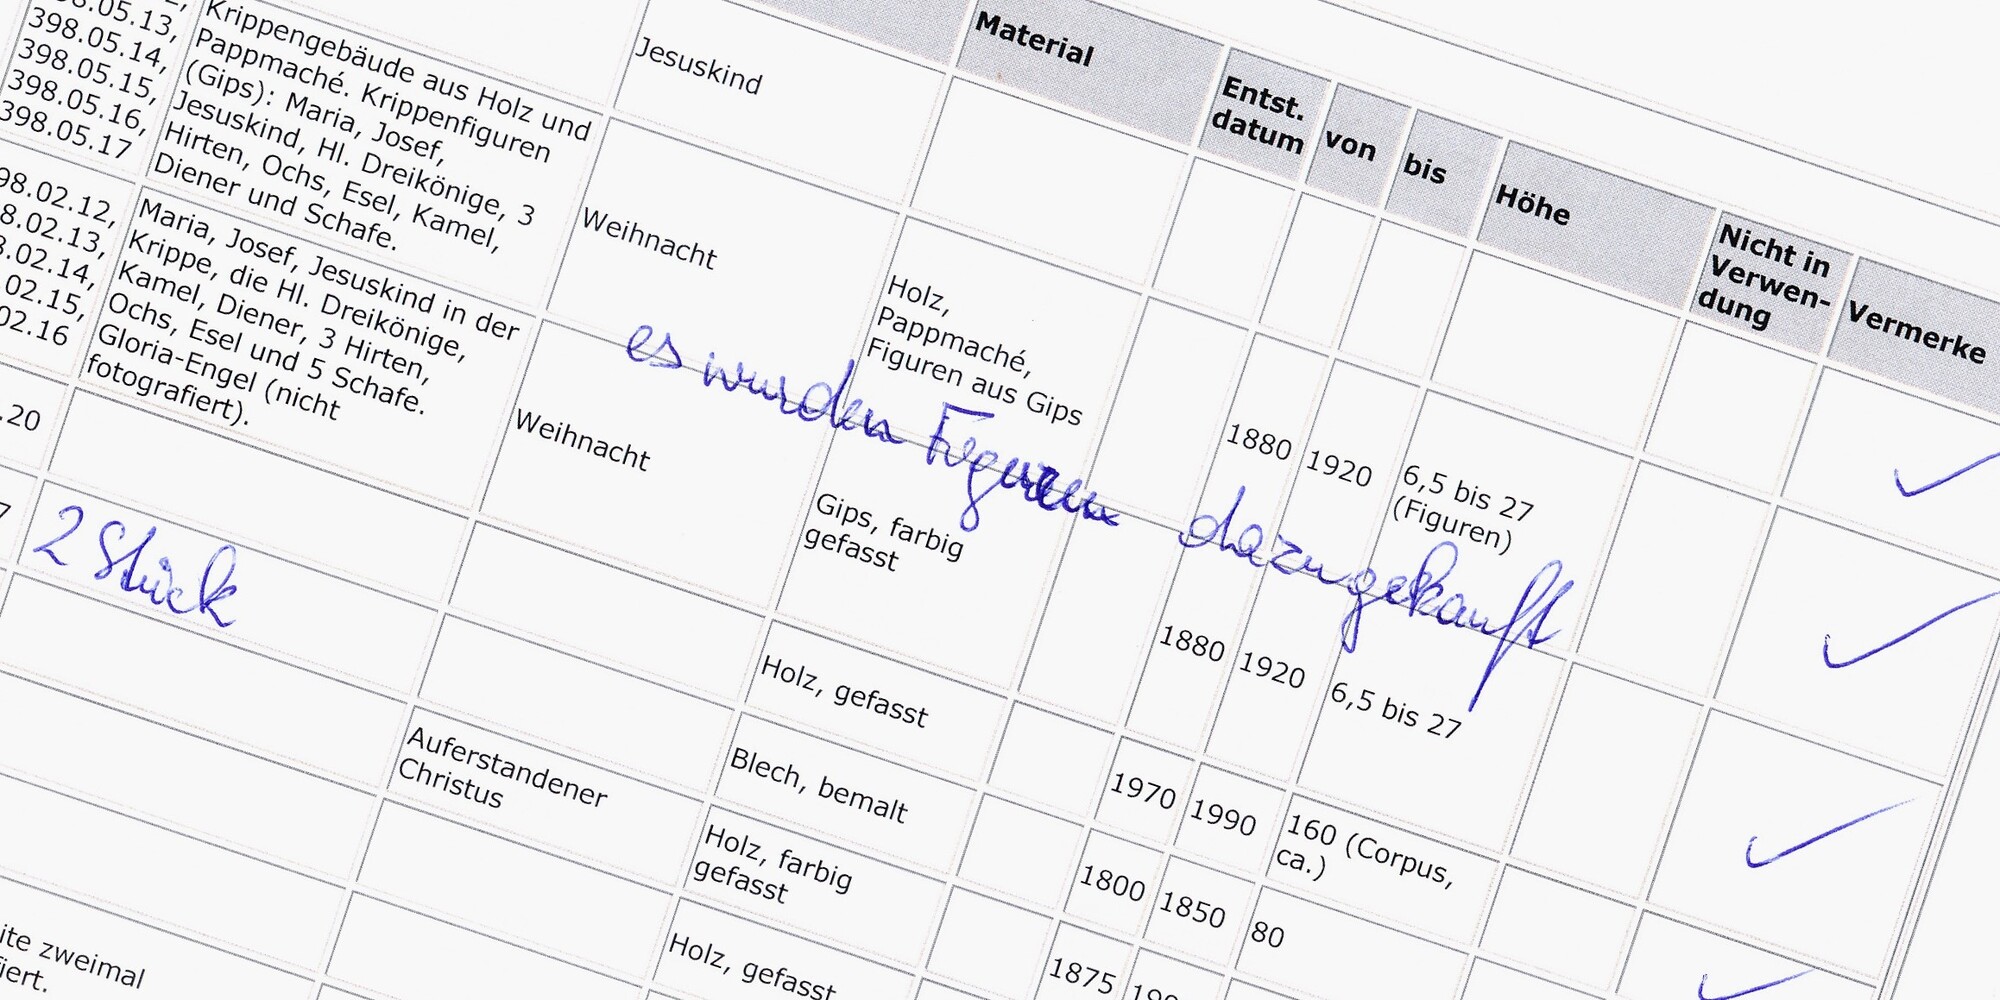 Material
Entst.
datum
von
bis
Höhe
Nicht in
Verwen-
dung
Vermerke
Jesuskind
398.05.14,
398.05.15,
398.05.16,
398.05.17
Krippengebäude aus Holz und
Pappmaché. Krippenfiguren
(Gips): Maria, Josef,
Jesuskind, Hl. Dreikönige, 3
Hirten, Ochs, Esel, Kamel,
Diener und Schafe.
Weihnacht
Holz,
Pappmaché,
Figuren aus Gips
1880
1920
6,5 bis 27
(Figuren)
es wurden Figuren dazugekauft
98.02.12,
8.02.13,
.02.14,
02.15,
02.16
Maria, Josef, Jesuskind in der
Krippe, die Hl. Dreikönige,
Kamel, Diener, 3 Hirten,
Ochs, Esel und 5 Schafe.
Gloria-Engel (nicht
fotografiert).
Weihnacht
Gips, farbig
gefasst
1880
1920
6,5 bis 27
.20
Holz, gefasst
1970
1990
160 (Corpus,
ca.)
7
2 Stück
Blech, bemalt
1800
1850
80
Auferstandener
Christus
Holz, farbig
gefasst
1875
Holz, gefasst
ite zweimal
iert.